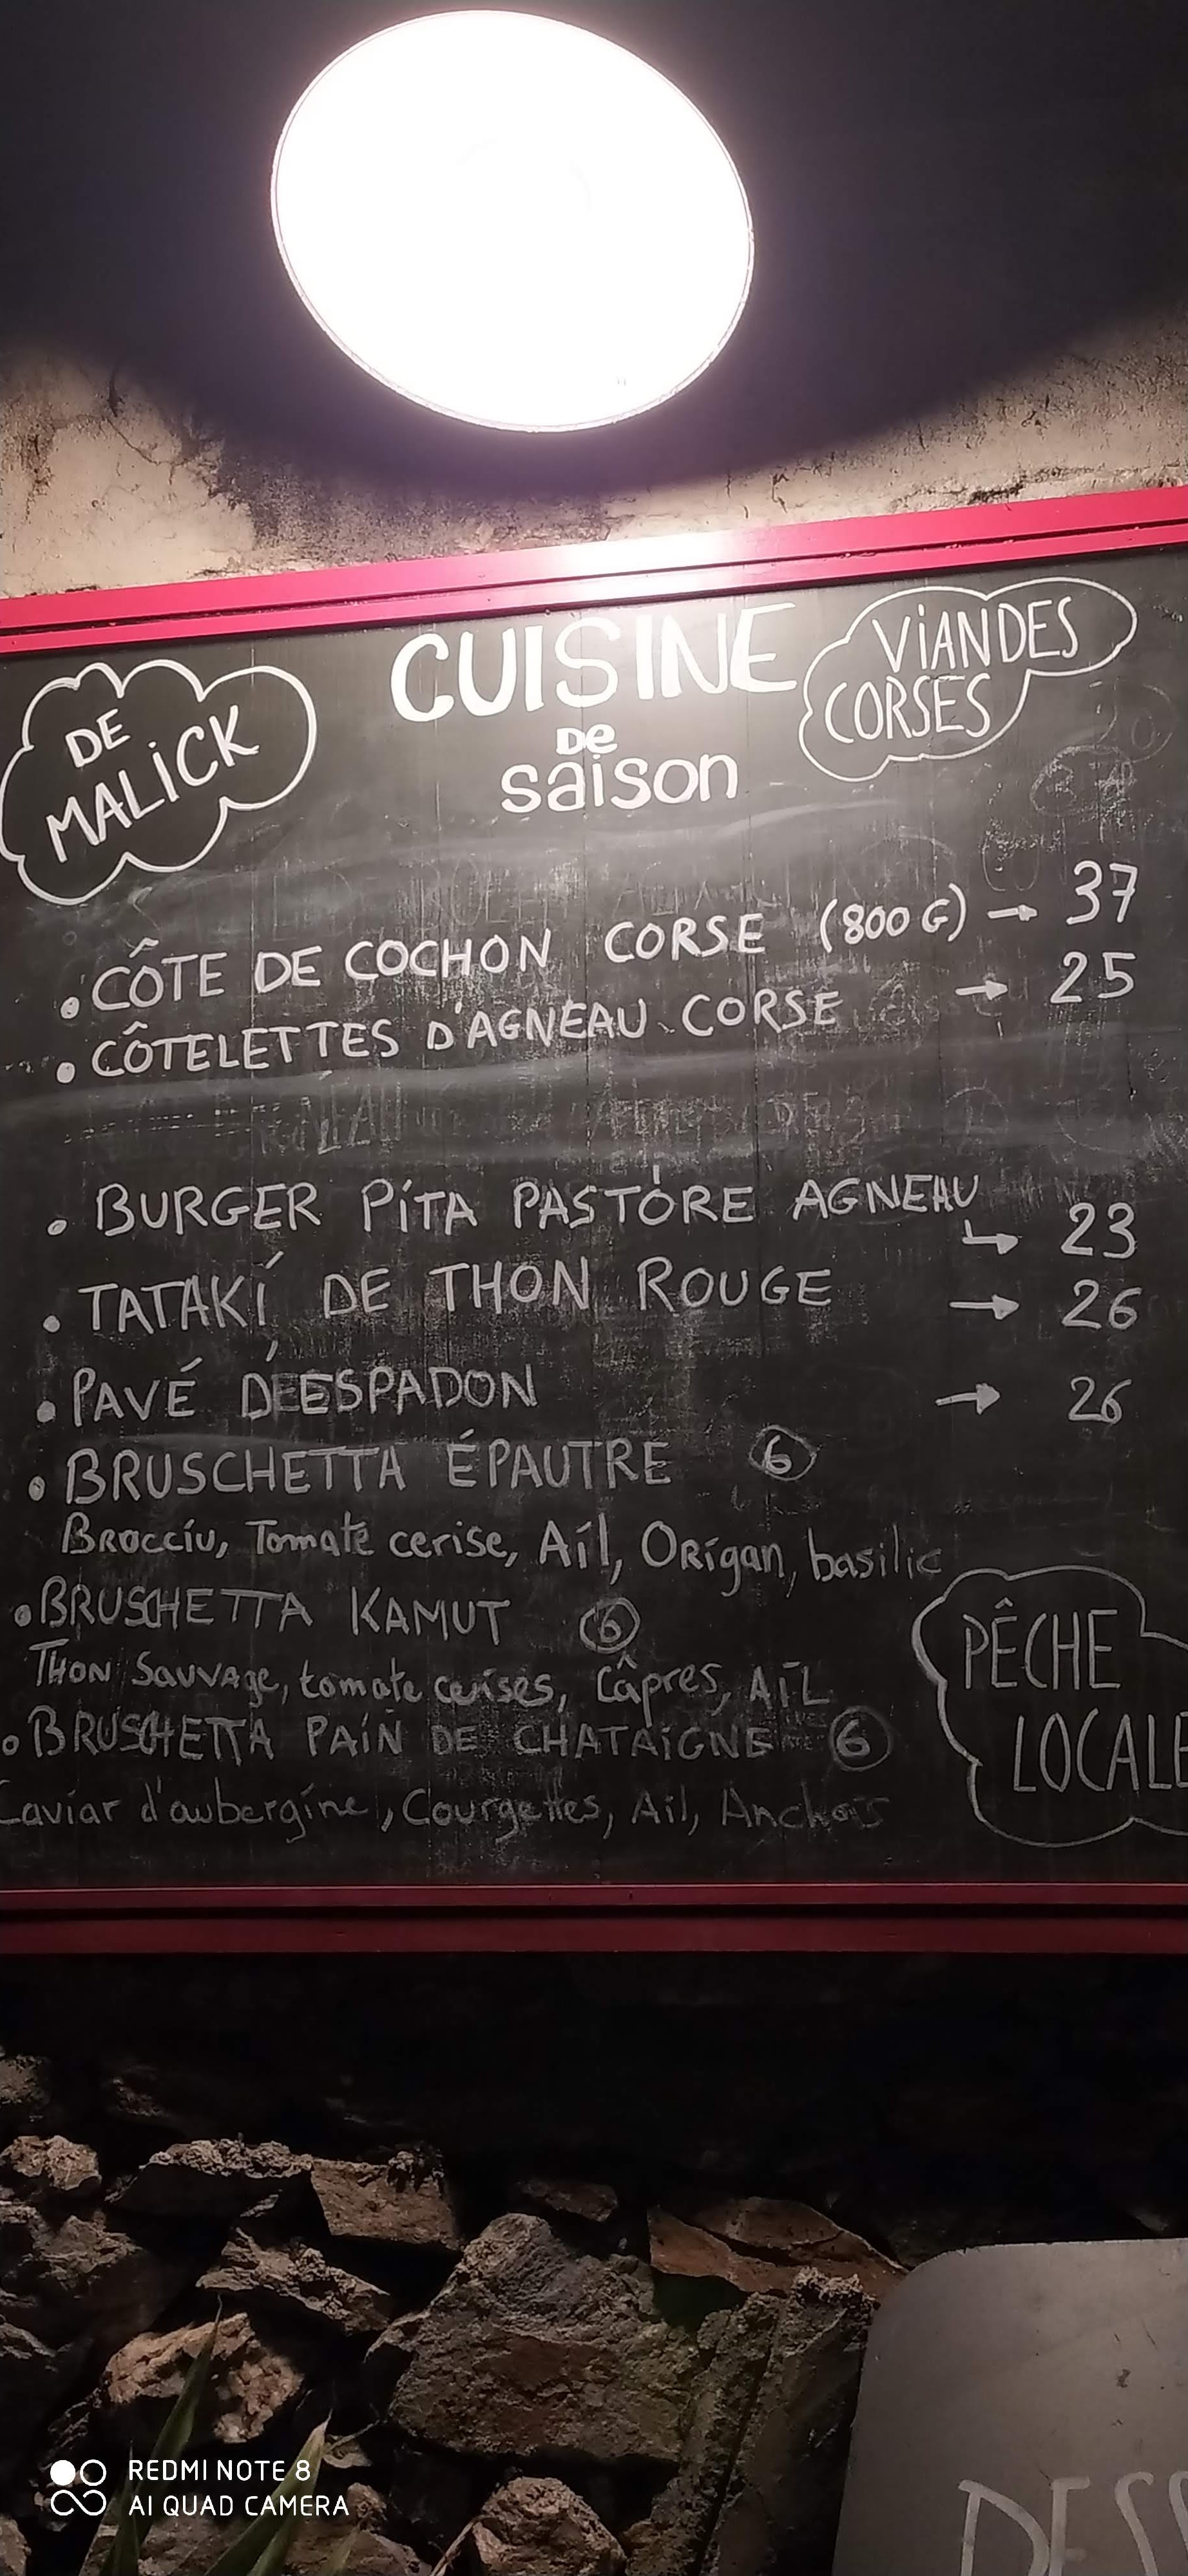 DE
MALiCK
CUISINE
De
saison
ViANDES
CORSES
. CÔTE DE COCHON CORSE (800 G) → 37
. CÔTELETTES D'AGNEAU CORSE → 25
. BURGER PíTA PASTÒRE AGNEAU
↳ 23
. TATAKí DE THON ROUGE → 26
. PAVÉ D'ESPADON → 26
. BRUSCHETTA ÉPAUTRE 6
Brocciu, Tomate cerise, Aíl, Orígan, basilic
. BRUSCHETTA KAMUT 6
THON SAUVAge, tomate cerises, Câpres, AIL
. BRUSCHETTA PAíN DE CHATAiGNE 6
Caviar d'aubergíne, Courgettes, Ail, Anchois
PÊCHE
LOCALE
DESS
REDMI NOTE 8
AI QUAD CAMERA